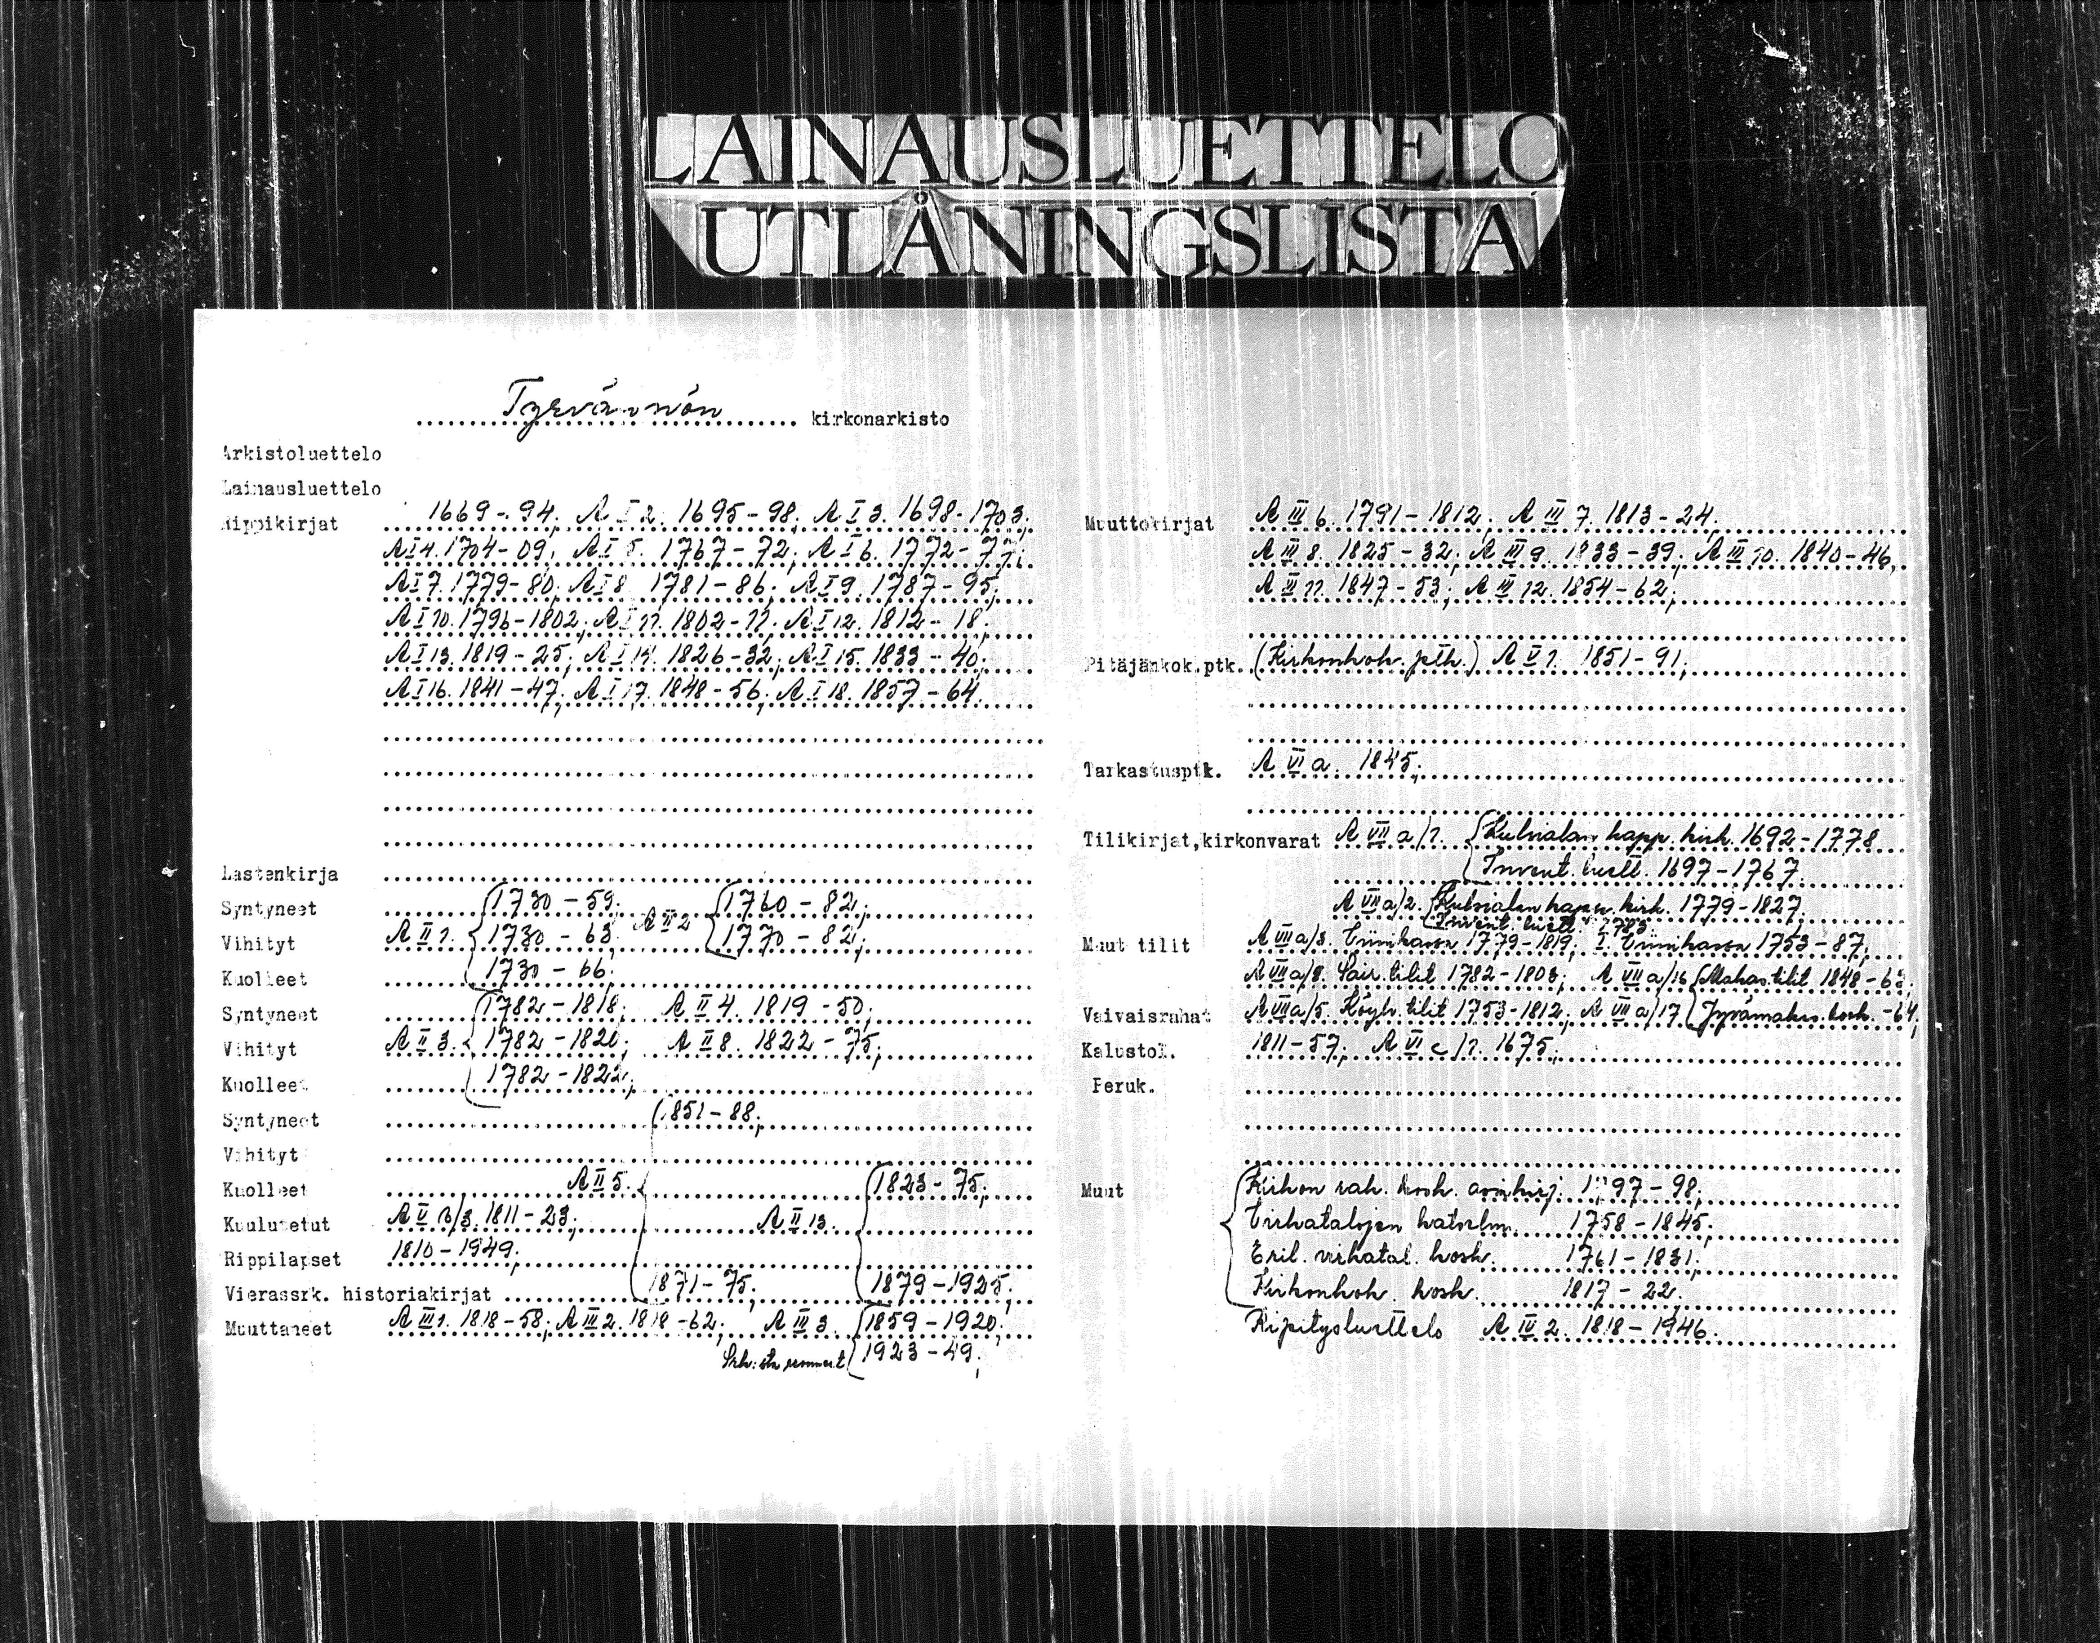 LAINAUSLUETTELO
UTLÅNINGSLISTA
Tyrvännön kirkonarkisto
Arkistoluettelo
Lainausluettelo
Rippikirjat 1669-94; A I 2. 1695-98; A I 3. 1698-1703;
A I 4. 1704-09; A I 5. 1767-72; A I 6. 1772-77;
A I 7. 1779-80; A I 8. 1781-86; A I 9. 1787-95;
A I 10. 1796-1802; A I 11. 1802-11; A I 12. 1812-18;
A I 13. 1819-25; A I 14. 1826-32; A I 15. 1833-40;
A I 16. 1841-47; A I 17. 1848-56; A I 18. 1857-64.
Lastenkirja
Syntyneet 1730-59; 1760-82;
Vihityt A II 1. 1730-63; A II 2 1770-82;
Kuolleet 1730-66;
Syntyneet 1782-1818; A II 4. 1819-50;
Vihityt A II 3. 1782-1820; A II 8. 1822-75;
Kuolleet 1782-1822;
Syntyneet 1851-88;
Vihityt
Kuolleet A II 5. 1823-75;
Kuulutetut A V B/3. 1811-23; A II 13.
Rippilapset 1810-1949;
Vierassrk. historiakirjat 1871-75; 1879-1925;
Muuttaneet A III 1. 1818-58; A III 2. 1818-62; A III 3. 1859-1920;
1923-49;
Muuttokirjat A III 6. 1791-1812; A III 7. 1813-24;
A III 8. 1825-32; A III 9. 1833-39; A III 10. 1840-46,
A III 11. 1847-53; A III 12. 1854-62;
Pitäjänkok.ptk. (Kirkonkok. ptk.) A V 1. 1851-91;
Tarkastusptk. A VI a. 1845;
Tilikirjat,kirkonvarat A VII a/1. Kulsialan kapp. kirk. 1692-1778
Invent. luett. 1697-1767.
A VII a/2. Kulsialan kapp. kirk. 1779-1827;
Invent. luett. 1783
Muut tilit A VII a/3. 1779-1819; 1753-87;
A VII a/8. tilit 1782-1808; A VII a/16 Makas. tilit 1848-
Vaivaisrahat A VII a/5. Köyh. tilit 1753-1812; A VII a/17 Jyvämakas. kosk. -64;
Kalustol. 1811-57; A VI c/1. 1675;
Peruk.
Muut Kirkon rah. kosk. asiakirj. 1797-98;
Virkatalojen katselm. 1758-1845;
Eril. virkatal. kosk. 1761-1831;
Kirkonkok. kosk. 1817-22.
Ripitysluettelo A IV 2. 1818-1946.